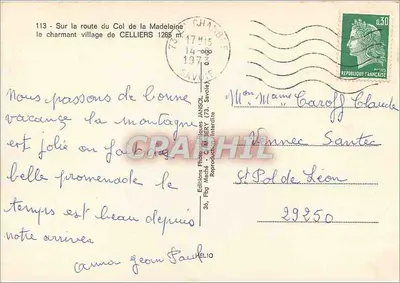 113 - Sur la route du Col de la Madeleine
le charmant village de CELLIERS 1285 m.
CHAMBE
17H15
14 -8
197
SAVOIE
0,30
REPUBLIQUE FRANÇAISE
Nous passons de bonne
vacance la montagne
est jolie on fait de
belle promenade le
temps est beau depuis
notre arriver
anna jean Paul
Editions Photographiques
36, Fbg Maché - CHAMBERY (73. Savoie)
Reproduction interdite
HELIO
Mon Mame Caroff Claude
Vennec Santec
St Pol de Léon
29250
CPARHIL